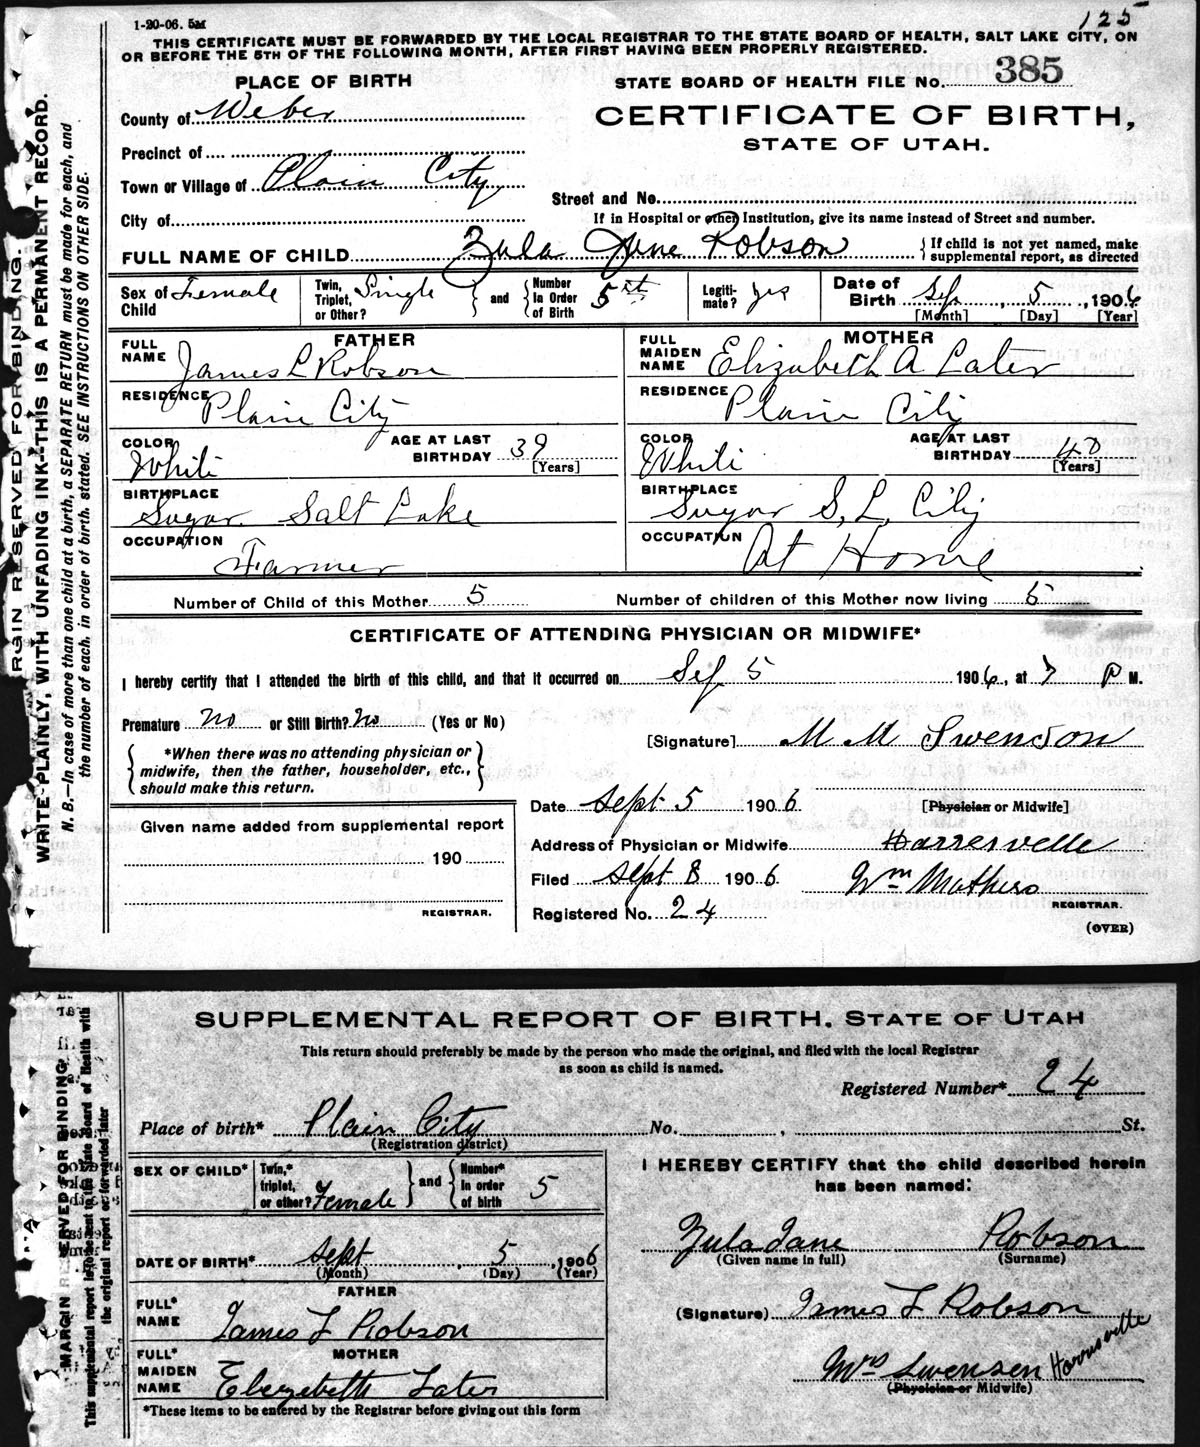 1-20-06. 5M
125
THIS CERTIFICATE MUST BE FORWARDED BY THE LOCAL REGISTRAR TO THE STATE BOARD OF HEALTH, SALT LAKE CITY, ON
OR BEFORE THE 5TH OF THE FOLLOWING MONTH, AFTER FIRST HAVING BEEN PROPERLY REGISTERED.
PLACE OF BIRTH
STATE BOARD OF HEALTH FILE No. 385
County of Weber
CERTIFICATE OF BIRTH,
STATE OF UTAH.
Precinct of
Town or Village of Plain City
Street and No.
City of
If in Hospital or other Institution, give its name instead of Street and number.
FULL NAME OF CHILD Zula Jane Robson
{ If child is not yet named, make
supplemental report, as directed
Sex of Child Female
Twin, Triplet, or Other? Single } and { Number In Order of Birth 5th
Legitimate? yes
Date of Birth Sep. 5, 1906
[Month] [Day] [Year]
FATHER
FULL NAME James L Robson
MOTHER
FULL MAIDEN NAME Elizabeth A Later
RESIDENCE Plain City
RESIDENCE Plain City
COLOR White
AGE AT LAST BIRTHDAY 39 [Years]
COLOR White
AGE AT LAST BIRTHDAY 40 [Years]
BIRTHPLACE Sugar Salt Lake
BIRTHPLACE Sugar S. L. City
OCCUPATION Farmer
OCCUPATION At Home
Number of Child of this Mother 5
Number of children of this Mother now living 5
CERTIFICATE OF ATTENDING PHYSICIAN OR MIDWIFE*
I hereby certify that I attended the birth of this child, and that it occurred on Sep 5 1906, at 7 P M.
Premature no or Still Birth? no (Yes or No)
[Signature] M M Swenson
{ *When there was no attending physician or
midwife, then the father, householder, etc.,
should make this return. }
Date Sept 5 1906
[Physician or Midwife]
Given name added from supplemental report
190
REGISTRAR.
Address of Physician or Midwife Harrisville
Filed Sept 8 1906
Wm Mathers
REGISTRAR.
Registered No. 24
(OVER)
MARGIN RESERVED FOR BINDING.
WRITE PLAINLY, WITH UNFADING INK--THIS IS A PERMANENT RECORD.
N. B.—In case of more than one child at a birth, a SEPARATE RETURN must be made for each, and
the number of each, in order of birth, stated. SEE INSTRUCTIONS ON OTHER SIDE.
SUPPLEMENTAL REPORT OF BIRTH. STATE OF UTAH
This return should preferably be made by the person who made the original, and filed with the local Registrar
as soon as child is named.
Registered Number* 24
Place of birth* Plain City No. , St.
(Registration district)
SEX OF CHILD*
Twin,* triplet, or other? Female } and { Number* In order of birth 5
I HEREBY CERTIFY that the child described herein
has been named:
DATE OF BIRTH* Sept 5, 1906
(Month) (Day) (Year)
Zula Jane Robson
(Given name in full) (Surname)
FATHER
FULL* NAME James L Robson
(Signature) James L Robson
MOTHER
FULL* MAIDEN NAME Elezebeth Later
Mrs Swensen Harrisville
(Physician or Midwife)
*These items to be entered by the Registrar before giving out this form
MARGIN RESERVED FOR BINDING.
This supplemental report is to be sent to the State Board of Health with
the original report or forwarded later